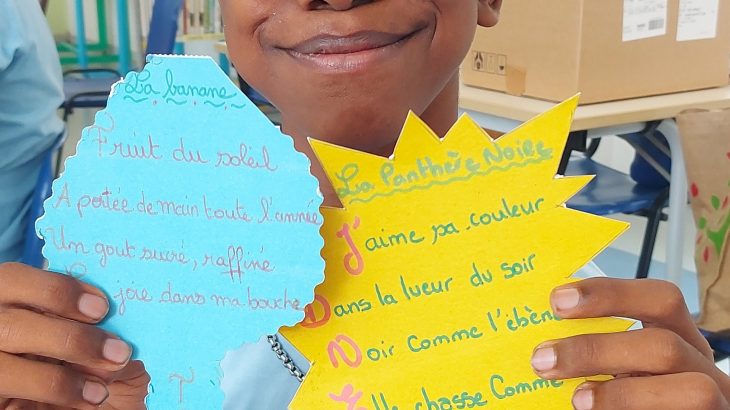 La banane
Fruit du soleil
A portée de main toute l'année
Un gout sucré, raffiné
joie dans ma bouche
T
La Panthère Noire
J'aime sa couleur
Dans la lueur du soir
Noir comme l'ébène
Elle chasse comme